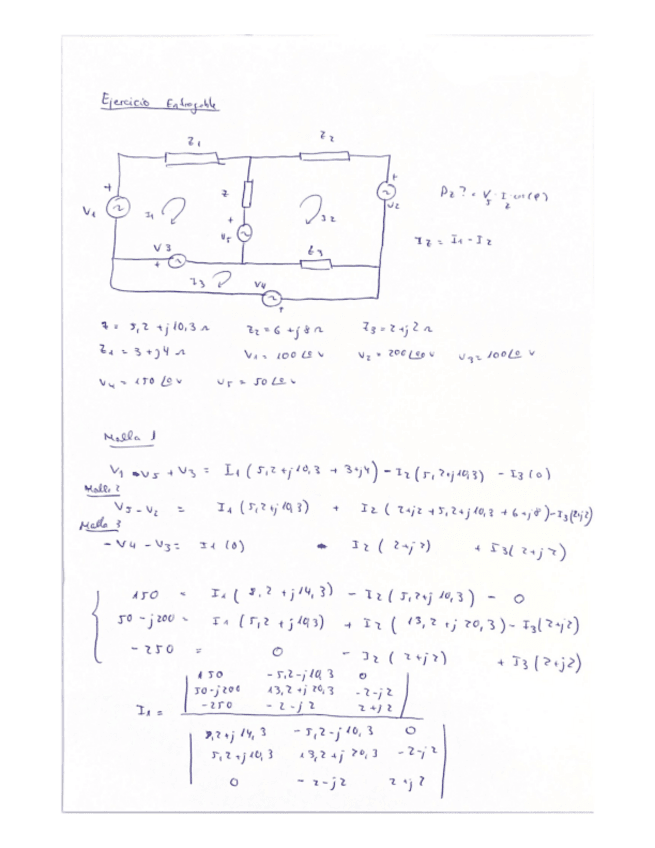 Ejercicio Entregable
Z1
Z2
Z
V1
I1
I2
V2
V5
V3
Z3
I3
V4
Pz? = V5 · Iz cos(φ)
Iz = I1 - I2
Z = 5,2 + j10,3 Ω
Z2 = 6 + j8 Ω
Z3 = 2 + j2 Ω
Z1 = 3 + j4 Ω
V1 = 100∠0 V
V2 = 200∠90 V
V3 = 100∠0 V
V4 = 150∠0 V
V5 = 50∠0 V
Malla 1
V1 - V5 + V3 = I1(5,2 + j10,3 + 3 + j4) - I2(5,2 + j10,3) - I3(0)
Malla 2
V5 - V2 = I1(5,2 + j10,3) + I2(2 + j2 + 5,2 + j10,3 + 6 + j8) - I3(2+j2)
Malla 3
- V4 - V3 = I1(0) - I2(2+j2) + I3(2+j2)
150 = I1(8,2 + j14,3) - I2(5,2+j10,3) - 0
50 - j200 = I1(5,2 + j10,3) + I2(13,2 + j20,3) - I3(2+j2)
-250 = 0 - I2(2+j2) + I3(2+j2)
150 -5,2-j10,3 0
50-j200 13,2+j20,3 -2-j2
-250 -2-j2 2+j2
I1 =
8,2+j14,3 -5,2-j10,3 0
5,2+j10,3 13,2+j20,3 -2-j2
0 -2-j2 2+j2